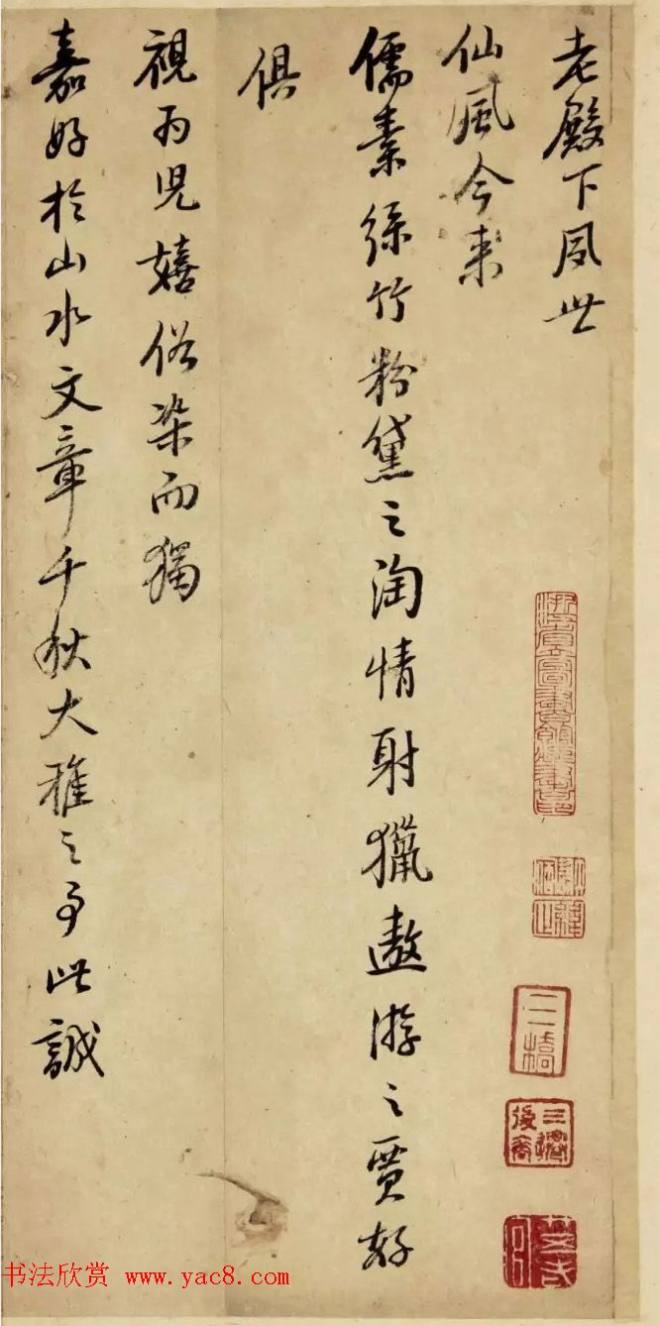 老殿下夙世
仙風今来
儒素絲竹粉黛之淘情射獵遨游之賈好
俱
視為児嬉俗染而獨
嘉好於山水文章千秋大雅之事此誠
二橋
三橋後裔
书法欣赏 www.yac8.com